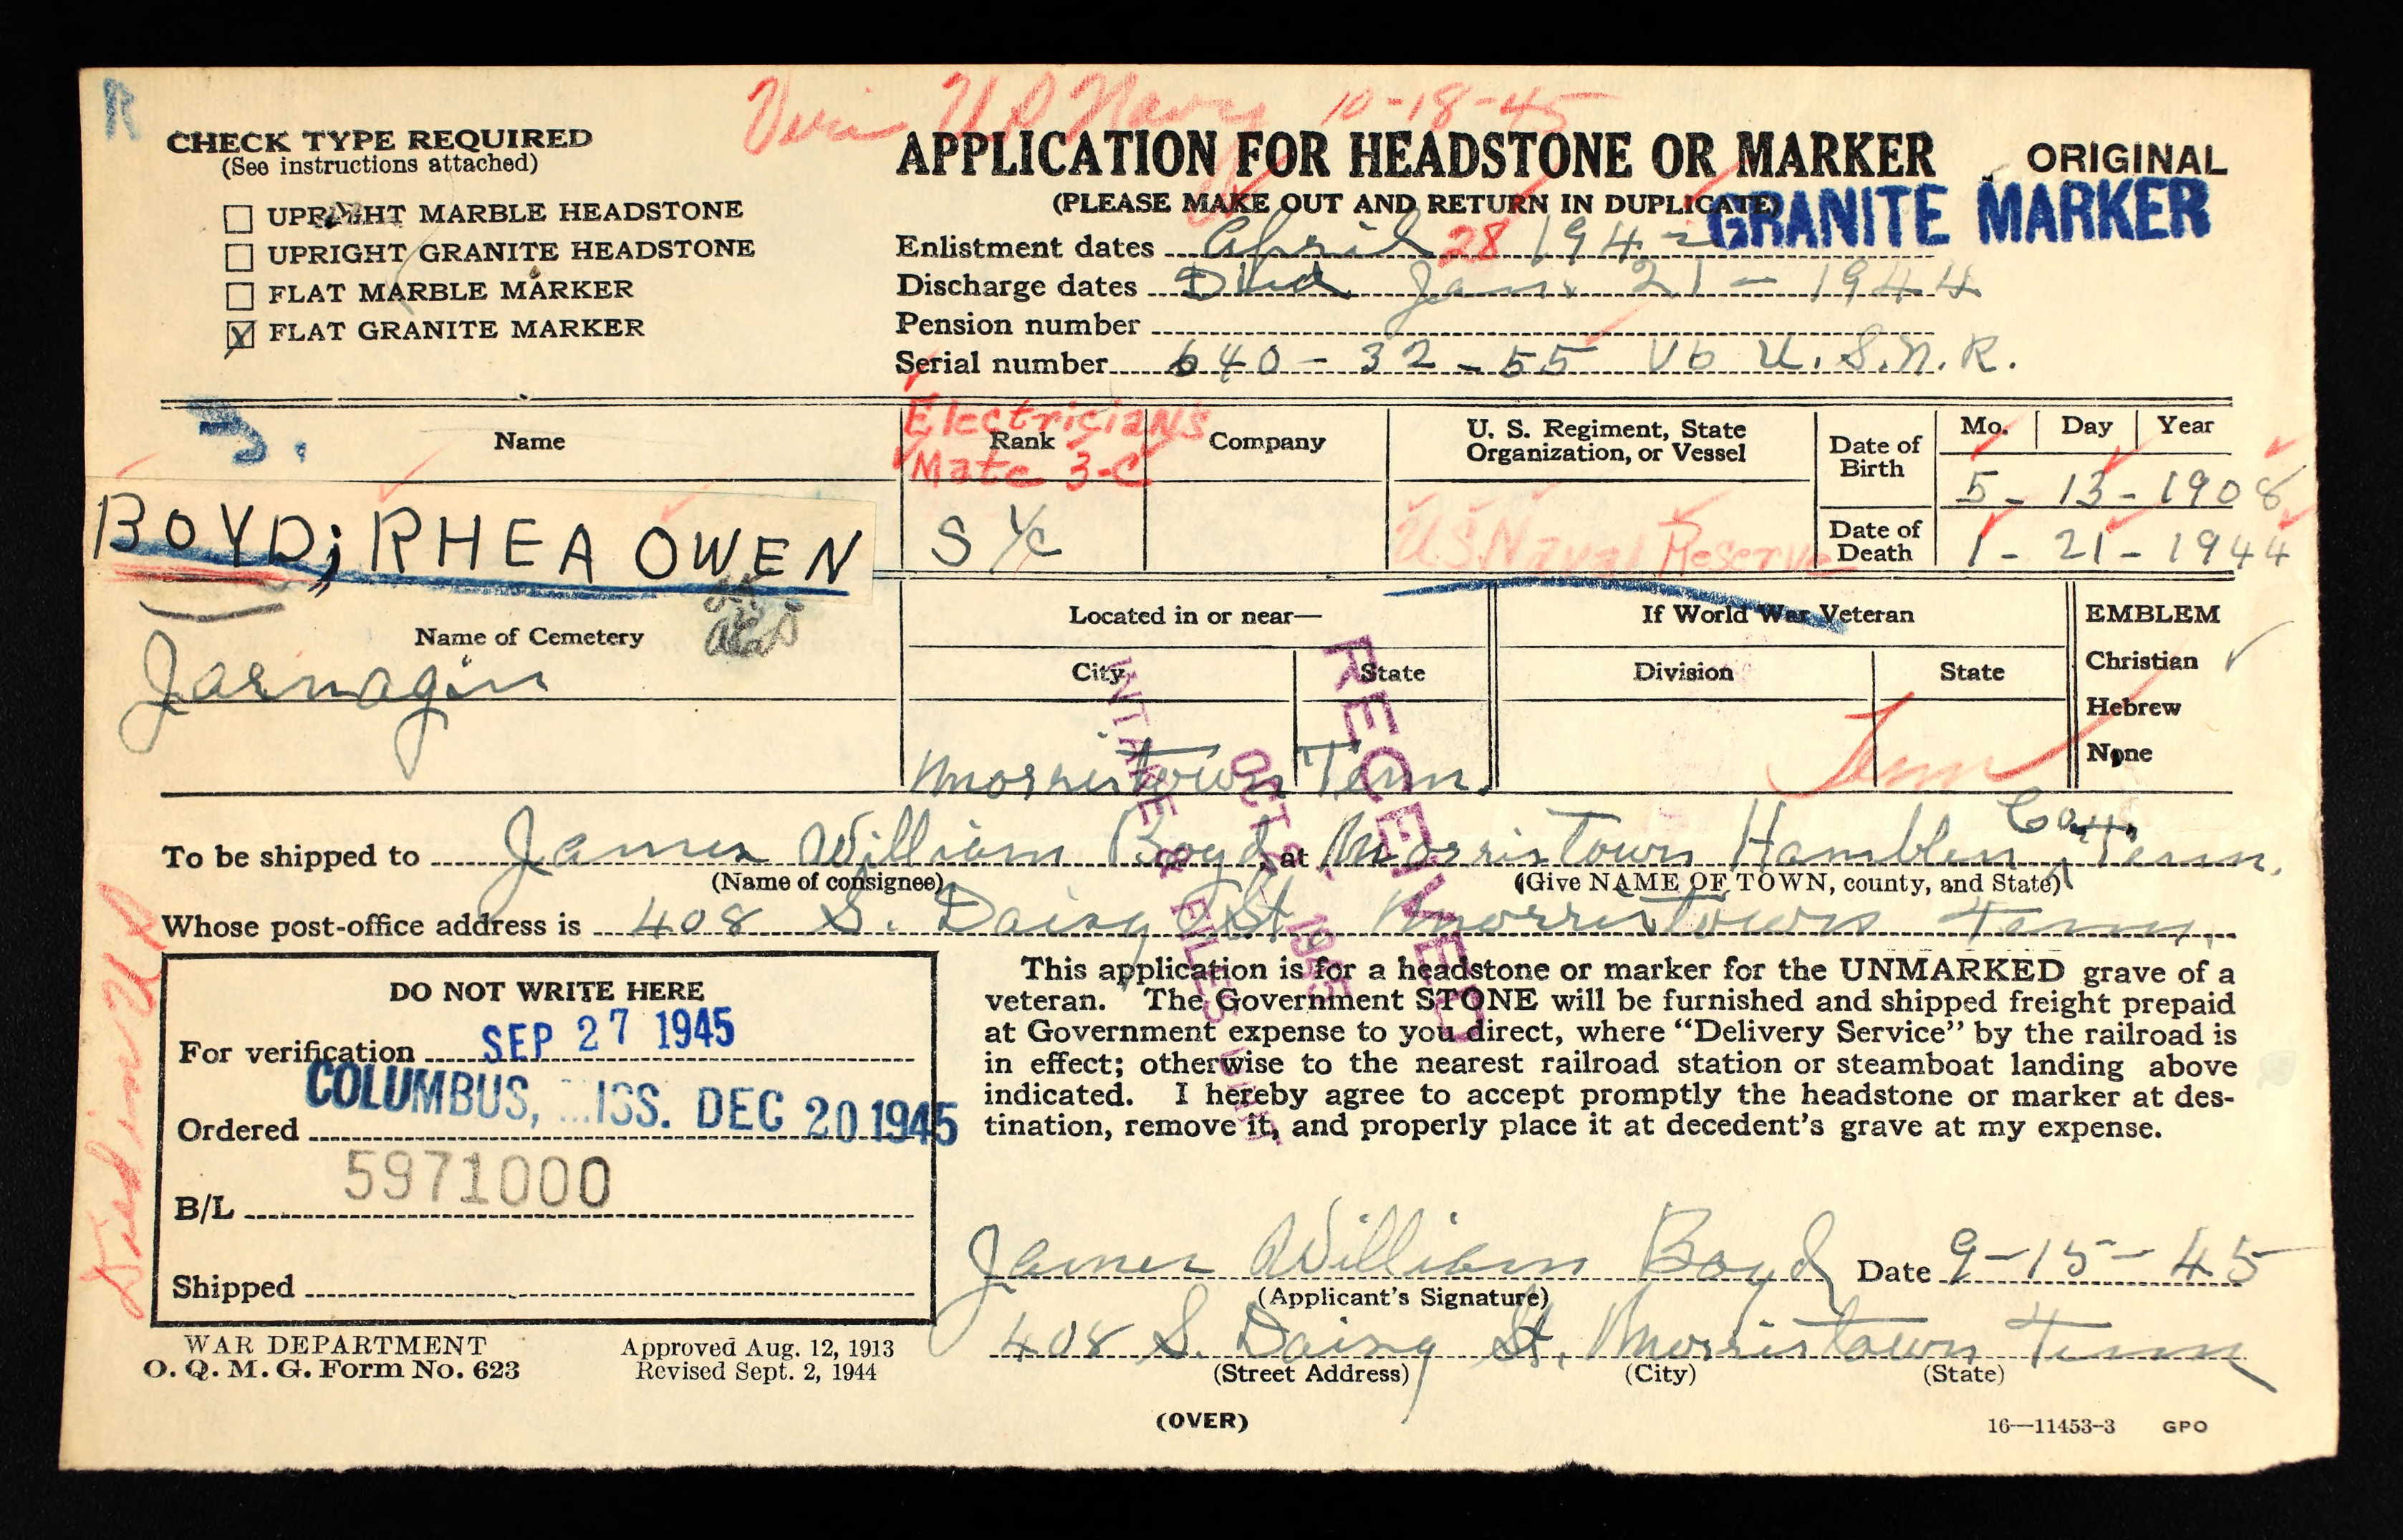 R
Veri US Navy 10-18-45
CHECK TYPE REQUIRED
(See instructions attached)
UPRIGHT MARBLE HEADSTONE
UPRIGHT GRANITE HEADSTONE
FLAT MARBLE MARKER
X FLAT GRANITE MARKER
APPLICATION FOR HEADSTONE OR MARKER
ORIGINAL
(PLEASE MAKE OUT AND RETURN IN DUPLICATE)
GRANITE MARKER
Enlistment dates April 28 1942
Discharge dates Died Jan. 21 - 1944
Pension number
Serial number 640-32-55 V6 U.S.N.R.
Name
Rank
Electricians
Mate 3-C
Company
U. S. Regiment, State
Organization, or Vessel
Date of
Birth
Mo. Day Year
5 - 13 - 1908
BOYD; RHEA OWEN
S 1/c
US Naval Reserve
Date of
Death
1 - 21 - 1944
Name of Cemetery
Jarnagin
Located in or near—
City State
Morristown Tenn.
If World War Veteran
Division State
Tenn
EMBLEM
Christian ✓
Hebrew
None
RECEIVED
OCT 1945
INTAKE & FILES UNIT
To be shipped to James William Boyd at Morristown Hamblen Co., Tenn.
(Name of consignee)
(Give NAME OF TOWN, county, and State)
Whose post-office address is 408 S. Daisy St. Morristown Tenn.
Died in US
DO NOT WRITE HERE
For verification SEP 27 1945
COLUMBUS, ISS. DEC 20 1945
Ordered
5971000
B/L
Shipped
This application is for a headstone or marker for the UNMARKED grave of a
veteran. The Government STONE will be furnished and shipped freight prepaid
at Government expense to you direct, where “Delivery Service” by the railroad is
in effect; otherwise to the nearest railroad station or steamboat landing above
indicated. I hereby agree to accept promptly the headstone or marker at des-
tination, remove it, and properly place it at decedent's grave at my expense.
James William Boyd Date 9-15-45
(Applicant's Signature)
408 S. Daisy St. Morristown Tenn
(Street Address) (City) (State)
WAR DEPARTMENT
O. Q. M. G. Form No. 623
Approved Aug. 12, 1913
Revised Sept. 2, 1944
(OVER)
16—11453-3 GPO